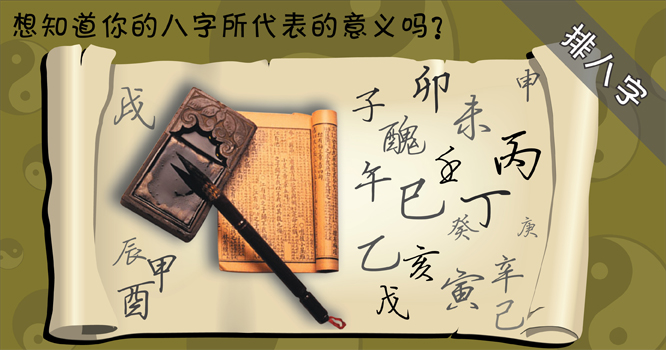 想知道你的八字所代表的意义吗?
排八字
戌
子
卯
申
醜
未
午
壬
丙
巳
丁
癸
庚
辰
甲
乙
亥
寅
辛
酉
戊
己